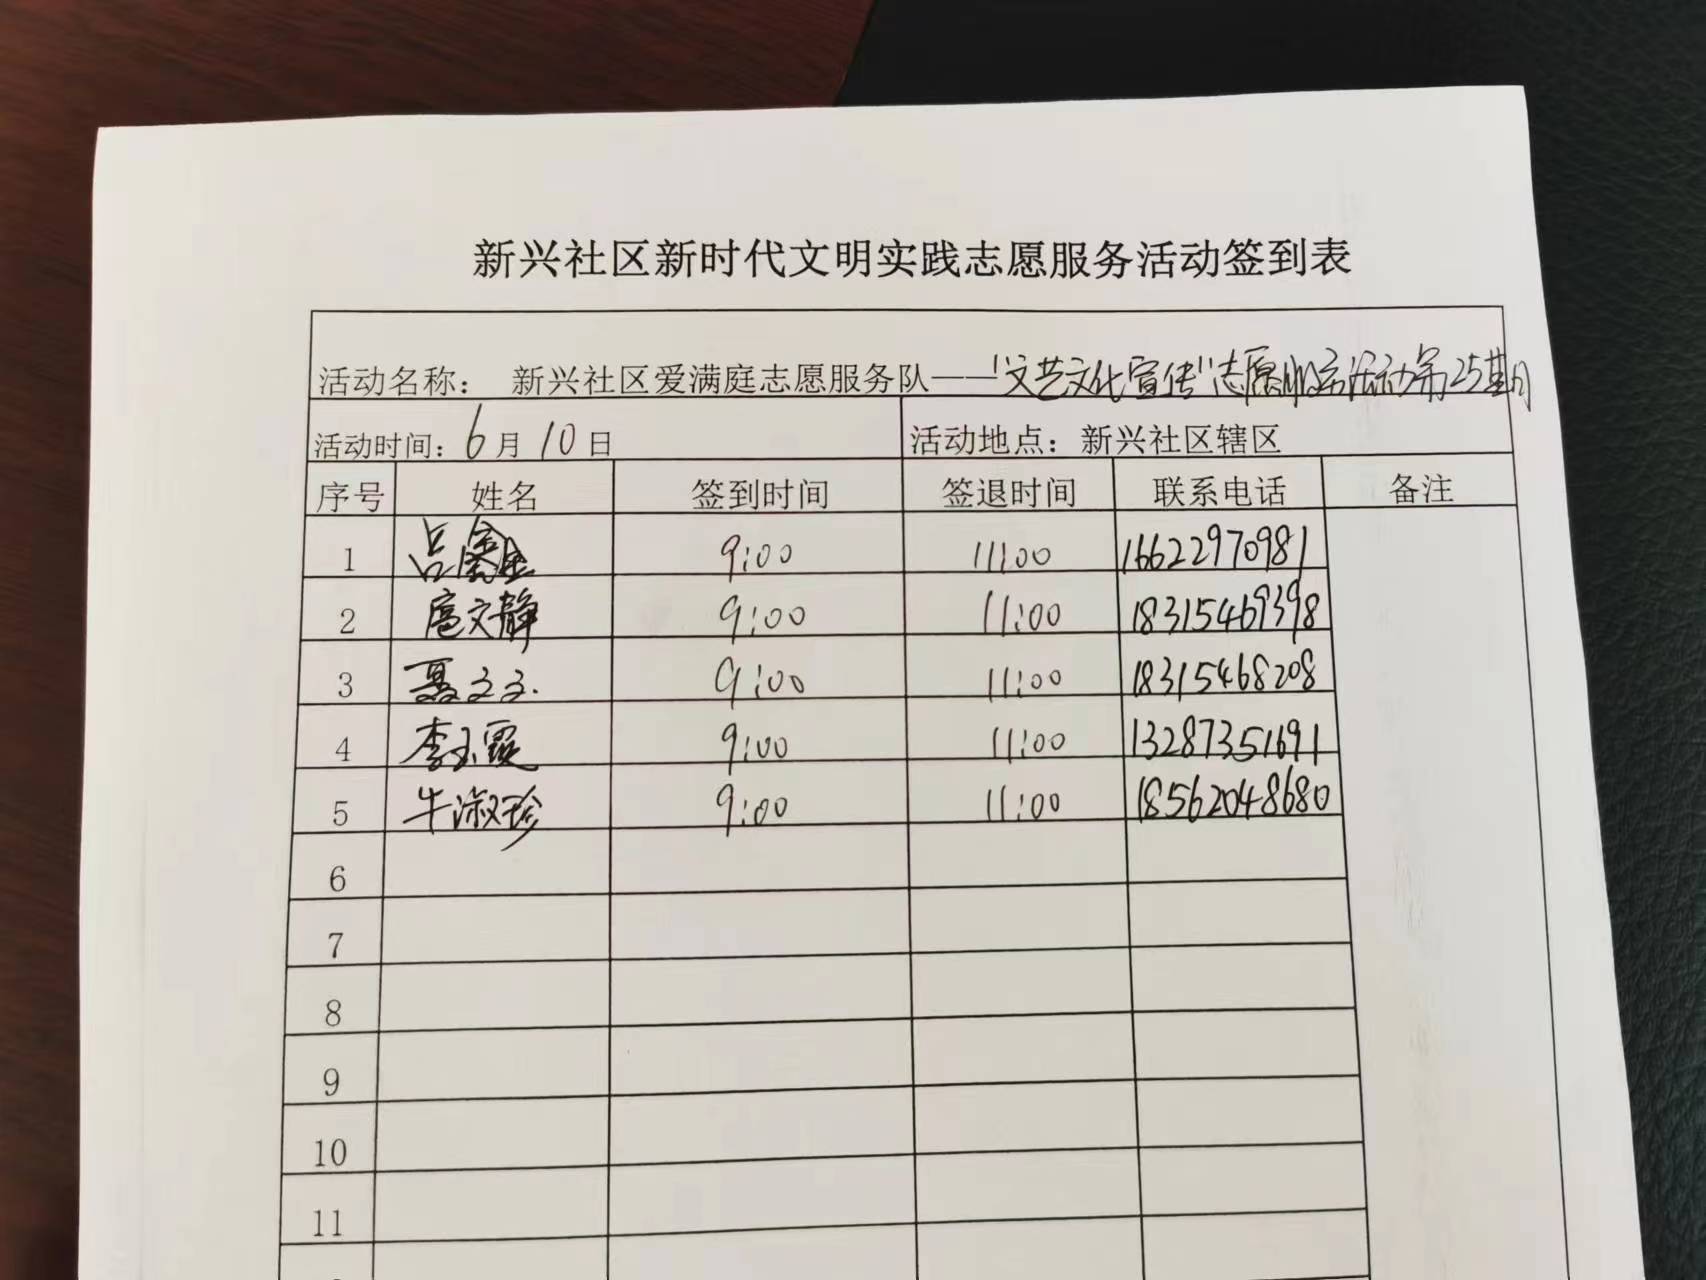 新兴社区新时代文明实践志愿服务活动签到表
活动名称： 新兴社区爱满庭志愿服务队——“文艺文化宣传”志愿服务活动第25期
活动时间：6月10日 活动地点：新兴社区辖区
序号 姓名 签到时间 签退时间 联系电话 备注
1 9:00 11:00 16622970981
2 扈文静 9:00 11:00 18315469398
3 聂文文 9:00 11:00 18315468208
4 李玉霞 9:00 11:00 13287351691
5 牛淑珍 9:00 11:00 18562048680
6
7
8
9
10
11